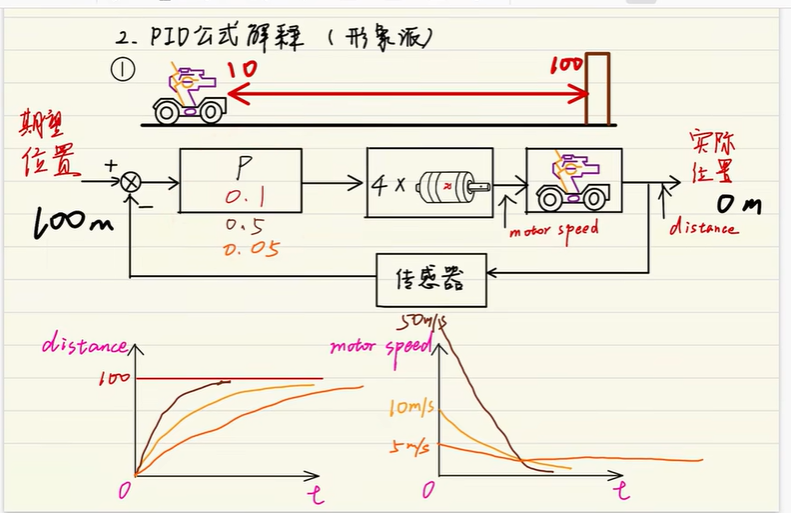 2. PID公式解释 （形象派）
①
10
100
期望
位置
+
-
100m
P
0.1
0.5
0.05
4 ×
≈
motor speed
实际
位置
0 m
distance
传感器
distance
100
0
t
motor speed
50m/s
10m/s
5m/s
0
t